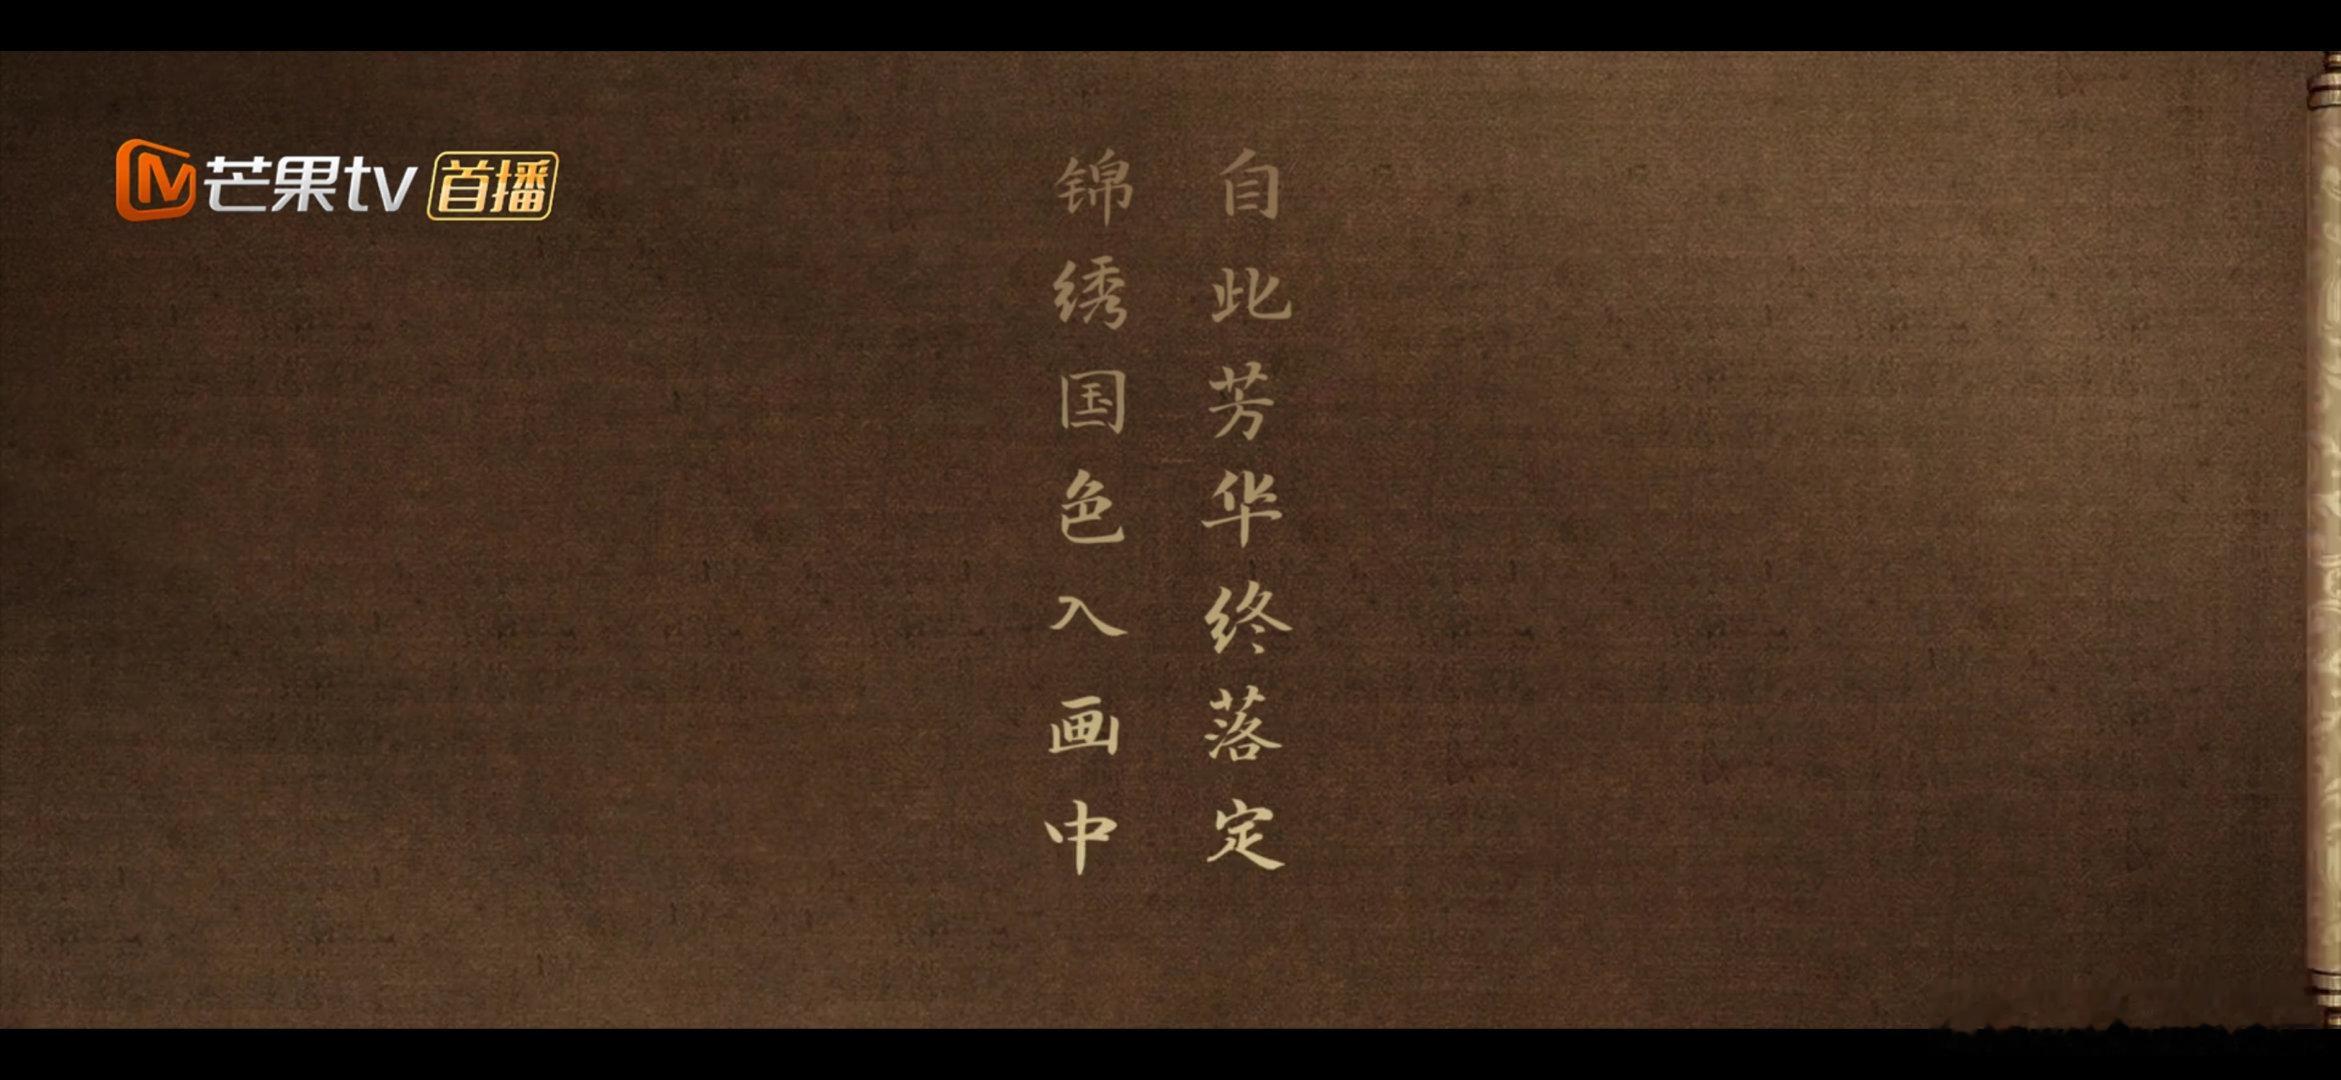 芒果tv 首播
自此芳华终落定
锦绣国色入画中